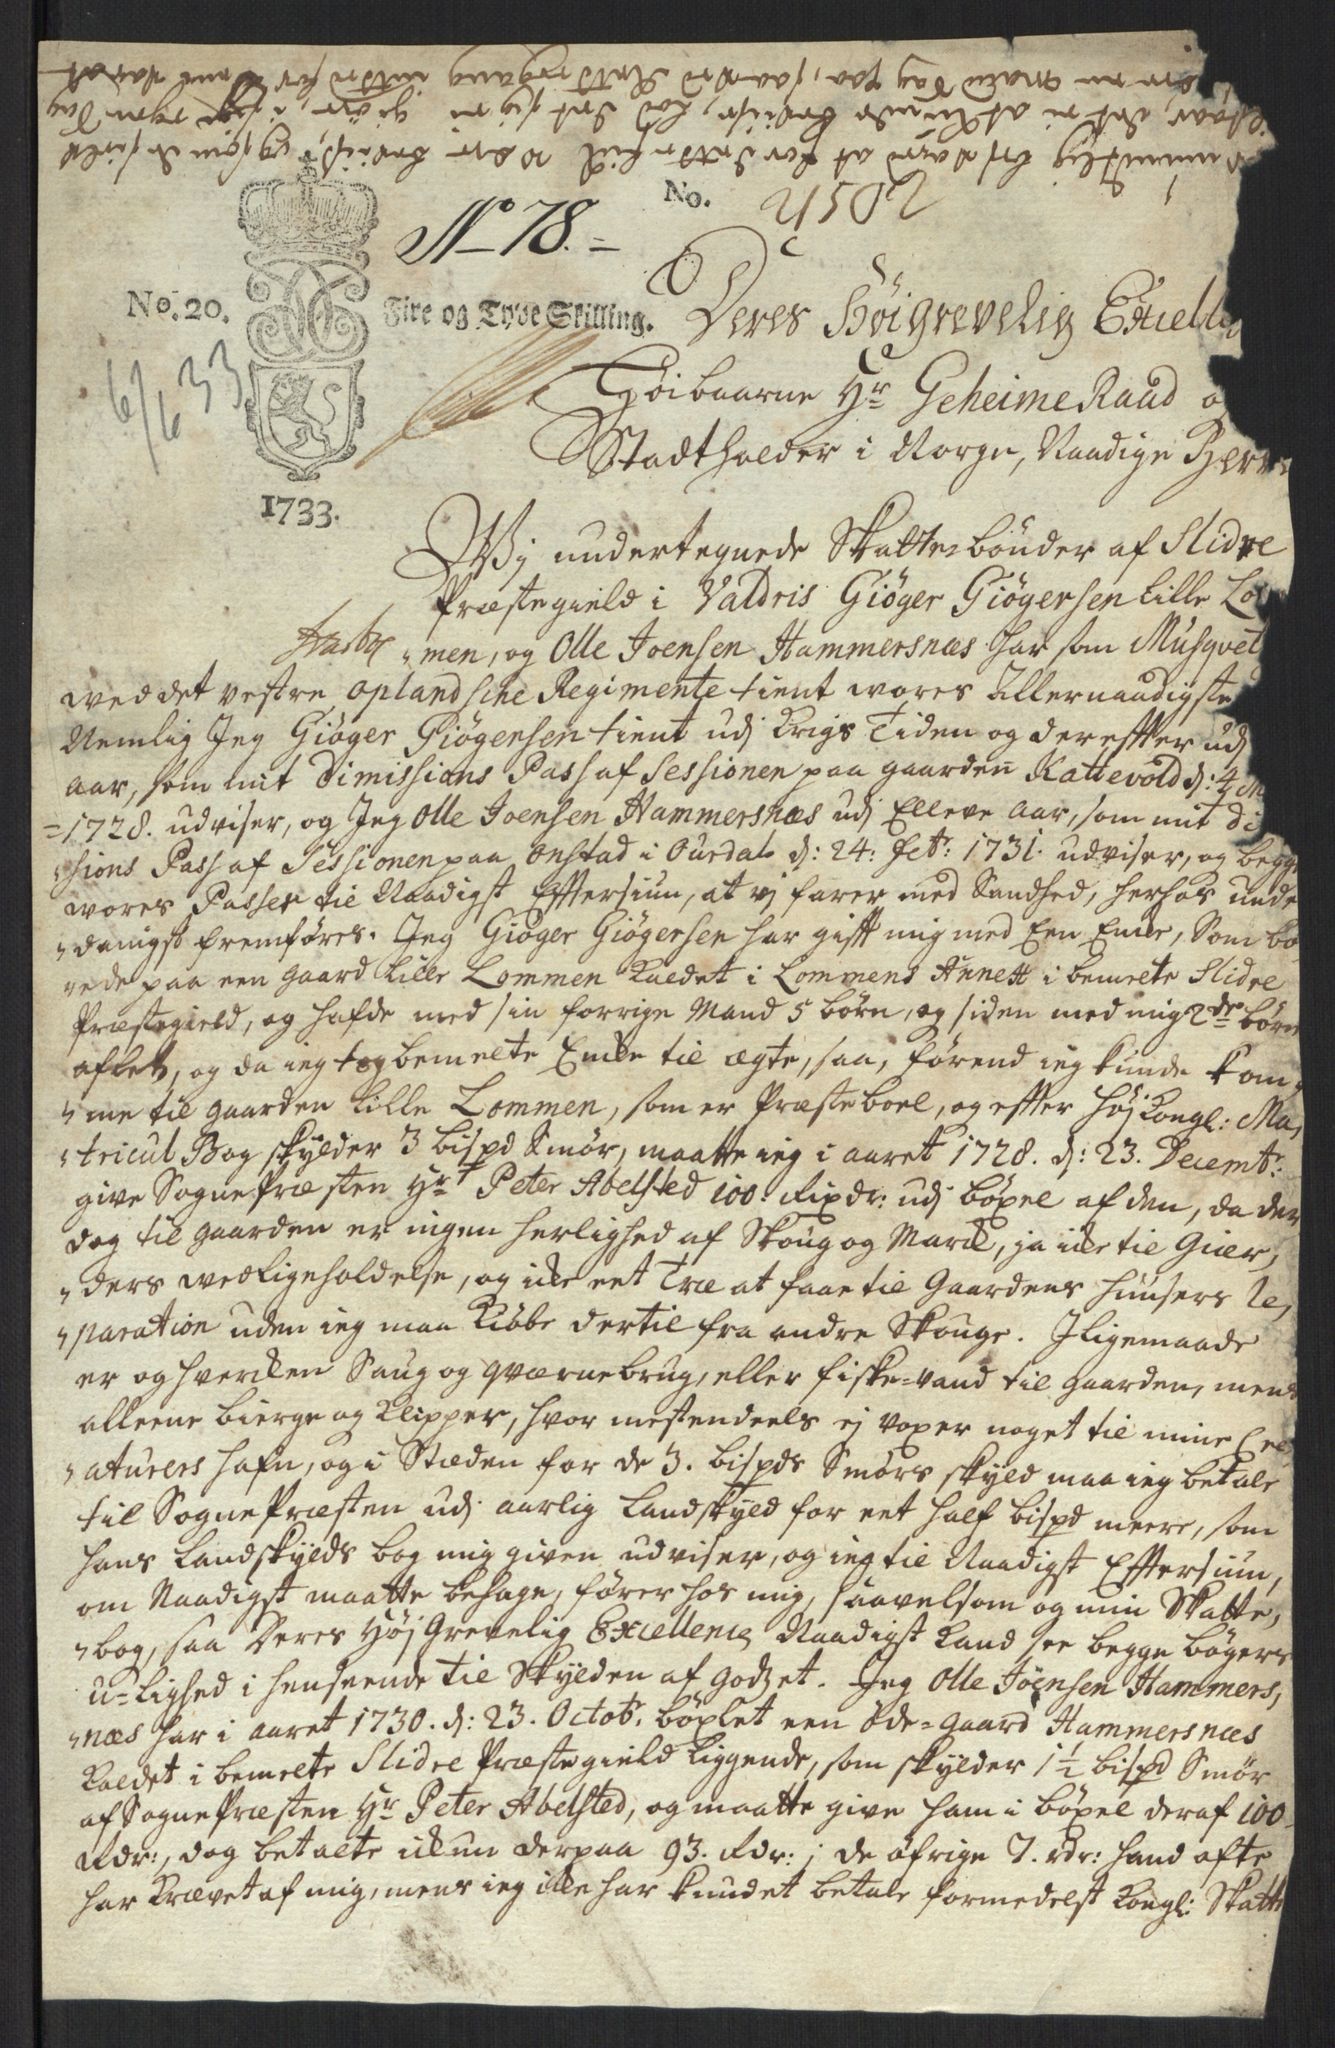 No. 21502
No 78. =
No. 20.
Fire og Tyve Skilling.
6/6 33
1733.
Deres Høigrevelig Excell
Høibaarne Hr Geheime Raad og
Stadtholder i Norge, Naadige Herre
Wj undertegnede Skatte bønder af Slidre
Præstegield i Valdris Giøger Giøgersen Lille Lom
men, og Olle Joensen Hammersnæs har som Musqvet
wed det vestre oplandsche Regimente tient wores Allernaadigste
Nemlig Jeg Giøger Giøgersen tient udj Krigs Tiden og derefter udj
aar, som mit Dimissions Pass af Sessionen paa gaarden Kattevold d: 4
1728. udviser, og Jeg Olle Joensen Hammersnæs udj Elleve aar, som mit Di
sions Pass af Sessionen paa Onstad i Ourdal d: 24: febr: 1731. udviser, og begge
wores Passer til Naadigst Eftersiun, at vj farer med Sandhed, herhos unde
danigst fremføres. Jeg Giøger Giøgersen har gift mig med Een Enke, Som bo
ede paa een gaard Lille Lommen kaldet i Lommens Annex i bemelte Slidre
Præstegield, og hafde med sin forrige Mand 5 børn, og siden med mig 2de børn
aflet, og da ieg tog bemelte Enke til ægte, saa, førend ieg kunde kom
me til gaarden Lille Lommen, som er Præsteboel, og efter Høj Kongl: Ma
tricul Bog skylder 3 bispd Smør, maatte ieg i aaret 1728. d: 23. Decembr:
give SognePræsten Hr Peter Abelsted 100: Rixdr: udj bøxel af den, da der
dog til gaarden er ingen herlighed af Skoug og Mark, ja icke til Giær
ders wedligeholdelse, og icke eet Træ at faae til Gaardens Huusers Re
paration uden ieg maa Kiøbe dertil fra andre Skouge. Iligemaade
er og hvercken Saug og qværnebrug, eller fiske=vand til gaarden, mens
alleene bierge og Klipper, hvor mestendeels ej voxer noget til mine Cre
aturers hafn, og i Stæden for de 3. bispds Smørs skyld maa ieg betale
til SognePræsten udj aarlig Landskyld for eet half bispd meere, som
hans Landskylds bog mig given udviser, og ieg til Naadigst Eftersiun,
om Naadigst maatte behage, fører hos mig, saavelsom og min Skatte
bog, saa Deres Høj Grevelig Excellence Naadigst kand see begge bøgers
u=lighed i henseende til Skylden af godzet. Jeg Olle Joensen Hammers
næs har i aaret 1730. d: 23. Octob. bøxlet een øde=gaard Hammersnæs
kaldet i bemelte Slidre Præstegield liggende, som skylder 1½ bispd Smør
af SognePræsten Hr Peter Abelsted, og maatte give ham i bøxel deraf 100
Rdr:, dog betalte ickun derpaa 93. Rdr: ; de øfrige 7. rdr: hand ofte
har Krævet af mig, mens ieg icke har kundet betale formedelst Kongl: Skatte